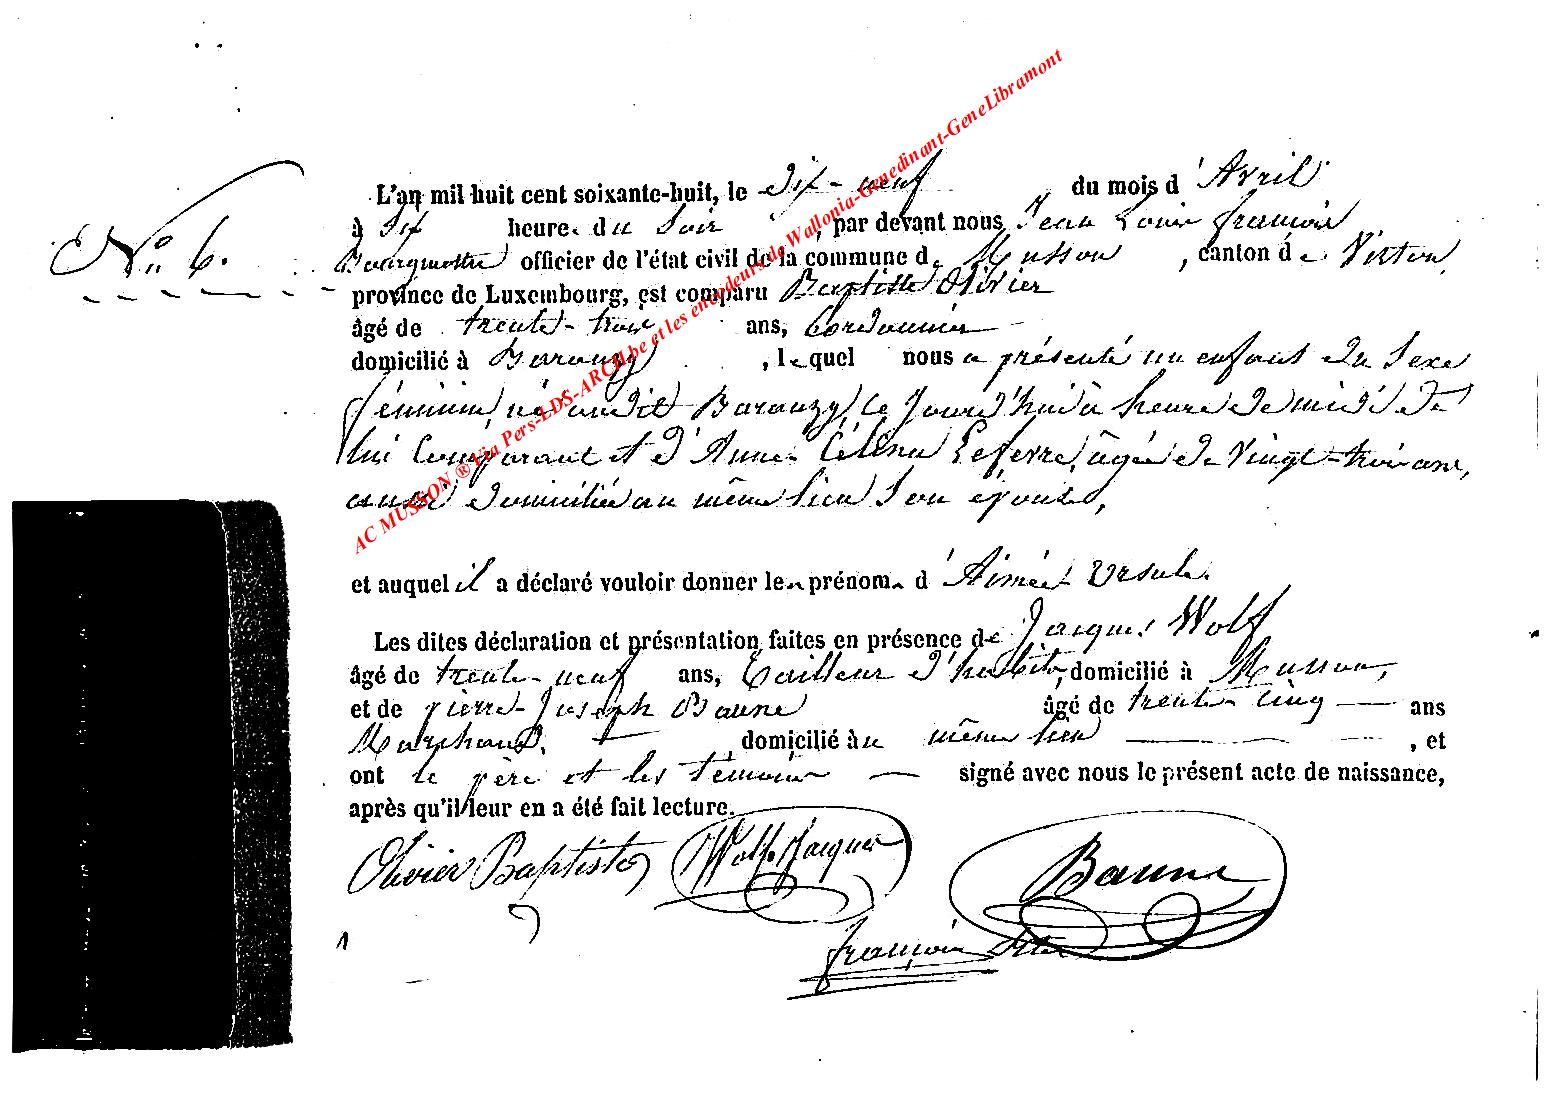 L'an mil huit cent soixante-huit, le dix-neuf du mois d'Avril
à Six heure. du Soir, par devant nous Jean Louis françois
Bourgmestre officier de l'état civil de la commune de Musson, canton de Virton
N° 6.
province de Luxembourg, est comparu Baptiste Olivier
âgé de trente-trois ans, Cordonnier
domicilié à Baranzy, lequel nous a présenté un enfant du Sexe
féminin, né audit Baranzy, ce jourd'hui à heure de midi de
lui Comparant et d'Anne Célina Lefevre, agée de vingt-trois ans,
aussi domiciliée au même lieu Son épouse,
et auquel il a déclaré vouloir donner les prénoms d'Aimée Ursule.
Les dites déclaration et présentation faites en présence de Jacques Wolf
âgé de trente-neuf ans, Tailleur d'habits, domicilié à Musson,
et de pierre-Joseph Baune âgé de trente-cinq ans
Marchand, domicilié au même lieu, et
ont le père et les témoins signé avec nous le présent acte de naissance,
après qu'il leur en a été fait lecture.
Olivier Baptiste Wolf Jacques Baune
françois
AC MUSSON ® Via Pers-LDS-ARCH.be et les encodeurs de Wallonia-Genedinant-GeneLibramont